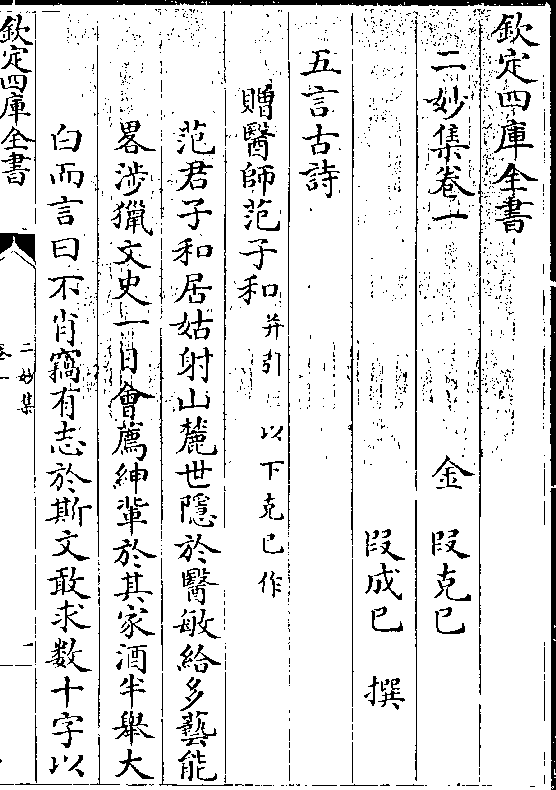 欽定四庫全書
二妙集卷一
金 段克已
段成已 撰
五言古詩
贈醫師范子和并引 以下克已作
范君子和居姑射山麓世隱於醫敏給多藝能
畧涉獵文史一日會薦紳輩於其家酒半舉大
白而言曰不肖竊有志於斯文敢求数十字以
欽定四庫全書
二妙集
卷一
一